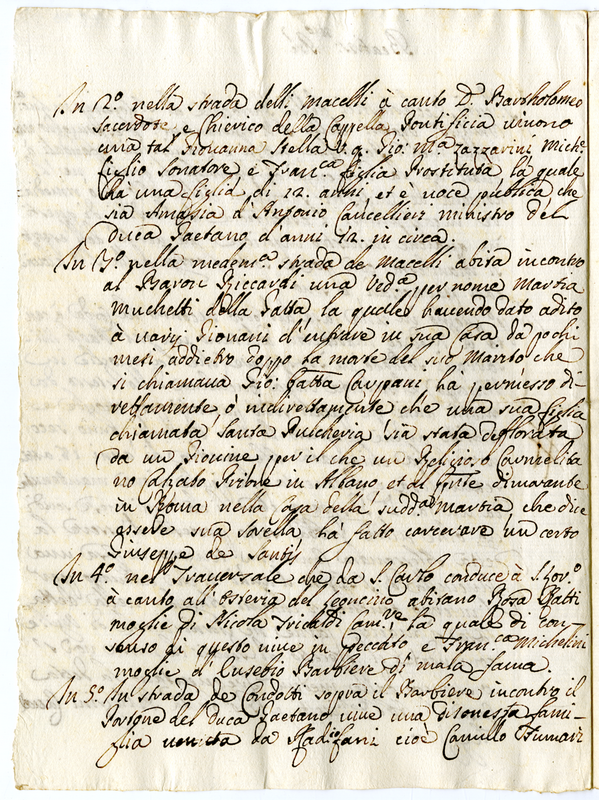 In 2.º nella strada delli Macelli à canto D. Bartholomeo
sacerdote, e Chierico della Cappella Pontificia vivono
una tal Giovanna Stella V.a q. Gio: M.a Zazzarini Mich.e
figlio sonatore, e Fran.ca figlia Prostituta, la quale
hà una figlia di 12. anni, et è voce publica che
sia Amasia d'Antonio Cancellieri ministro del
Duca Gaetano d'anni 12. in circa.
In 3.º nella medem.a strada de Macelli abita incontro
al Baron Riccardi una Ved.a per nome Martia
Muchetti della Fatta la quale havendo dato adito
à varij Giovani d'entrare in sua Casa da pochi
mesi addietro doppo la morte del suo Marito che
si chiamava Gio: Batta Carpani hà permesso di-
rettamente ò indirettamente che una sua figlia
chiamata Santa Pulcheria sia stata deflorata
da un Giovine per il che un Religioso Carmelita-
no Calzato Priore in Albano et al pnte dimorante
in Roma nella Casa della sudd.a Martia che dice
essere sua sorella hà fatto carcerare un certo
Giuseppe de Santis
In 4.º nel Traversale che da S. Carlo conduce à S. Gio.º
à canto all'Osteria del Leoncino abitano Rosa Ratti
moglie di Nicola Tricaldi la quale di con-
senso di questo vive in peccato e Fran.ca Michelini
moglie d'Eusebio Barbiere di mala fama.
In 5.º In strada de Condotti sopra il Barbiere incontro il
Portone del Duca Gaetano vive una disonesta fami-
glia cioè Camillo Fumari